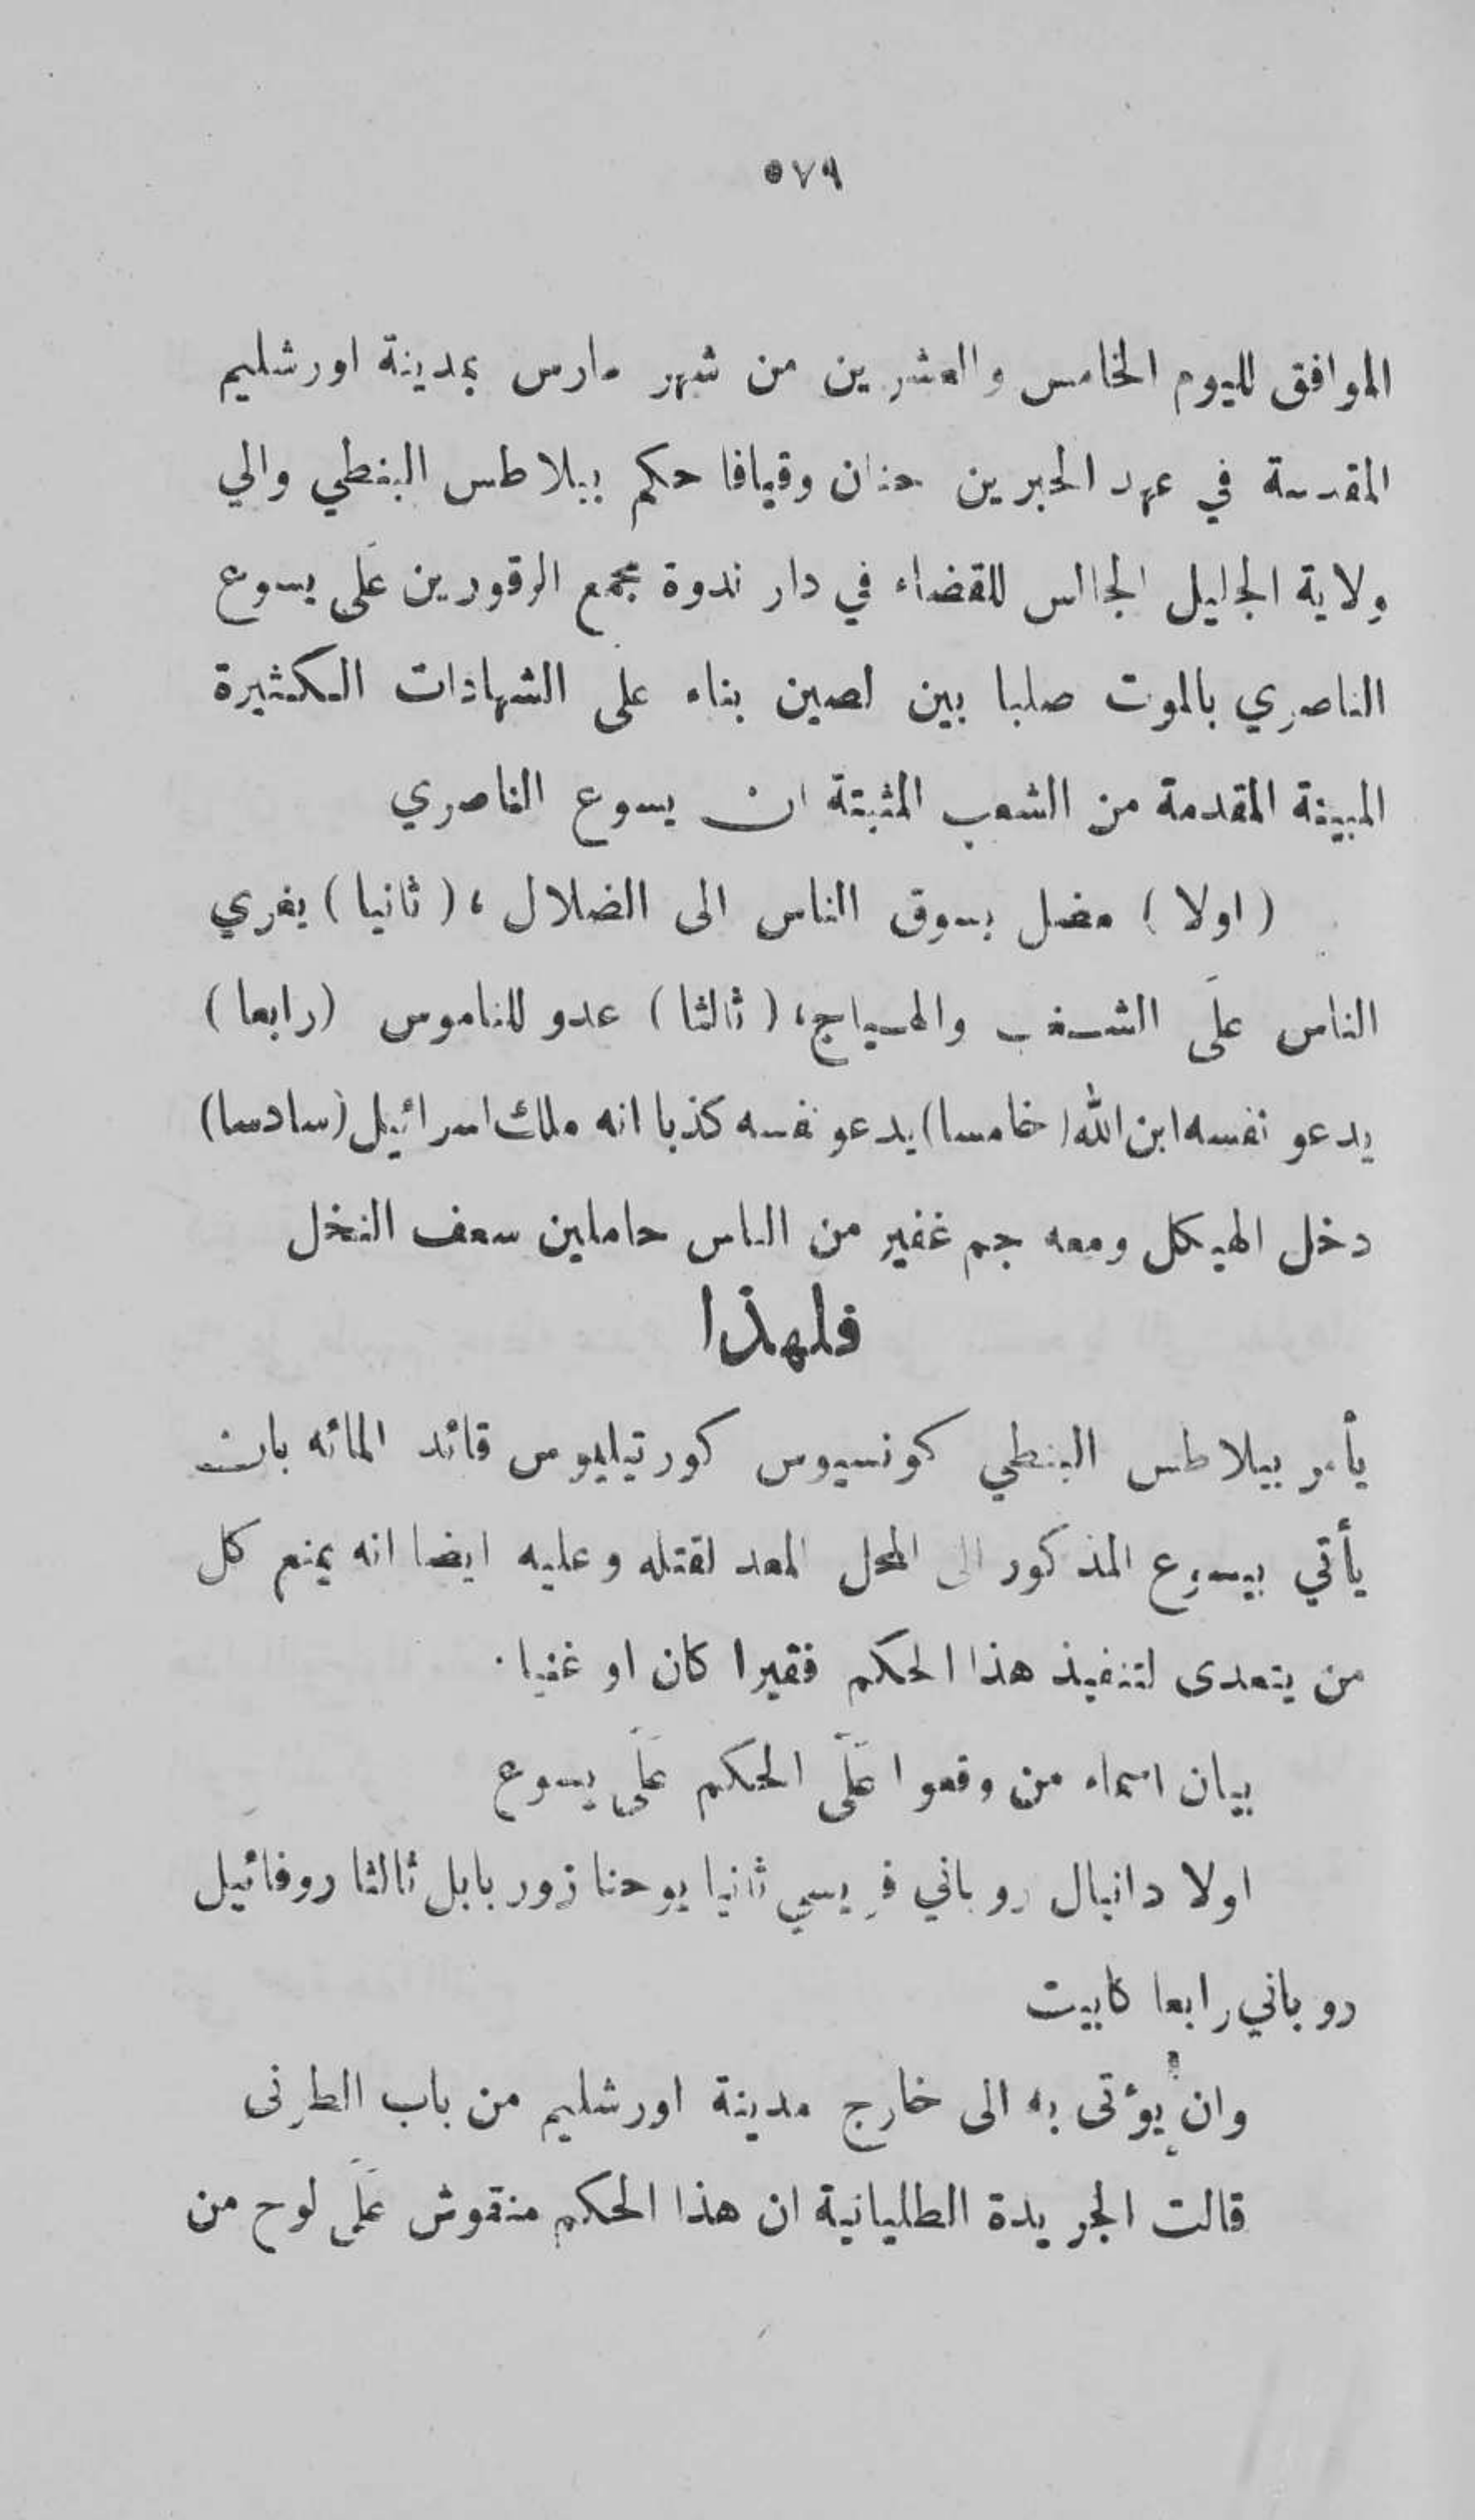 ٥٧٩
الموافق لليوم الخامس والعشرين من شهر مارس بمدينة اورشليم
المقدسة في عهد الحبرين حنان وقيافا حكم بيلاطس البنطي والي
ولاية الجليل الجالس للقضاء في دار ندوة مجمع الرقورين عَلَى يسوع
الناصري بالموت صلبا بين لصين بناء على الشهادات الكثيرة
المبينة المقدمة من الشعب المثبتة ان يسوع الناصري
(اولا) مضل يسوق الناس الى الضلال، (ثانيا) يغري
الناس علَى الشغب والهياج، (ثالثا) عدو للناموس (رابعا)
يدعو نفسه ابن الله (خامسا) يدعو نفسه كذبا انه ملك اسرائيل (سادسا)
دخل الهيكل ومعه جم غفير من الناس حاملين سعف النخل
فلهذا
يأمر بيلاطس البنطي كونسيوس كورتيليوس قائد المائه بان
يأتي بيسوع المذكور الى المحل المعد لقتله وعليه ايضا انه يمنع كل
من يتعدى لتنفيذ هذا الحكم فقيرا كان او غنيا.
بيان اسماء من وقعوا عَلَى الحكم عَلَى يسوع
اولا دانيال روباني فريسي ثانيا يوحنا زور بابل ثالثا روفائيل
روباني رابعا كابيت
وان يؤتى به الى خارج مدينة اورشليم من باب الطرنى
قالت الجريدة الطليانية ان هذا الحكم منقوش عَلَى لوح من